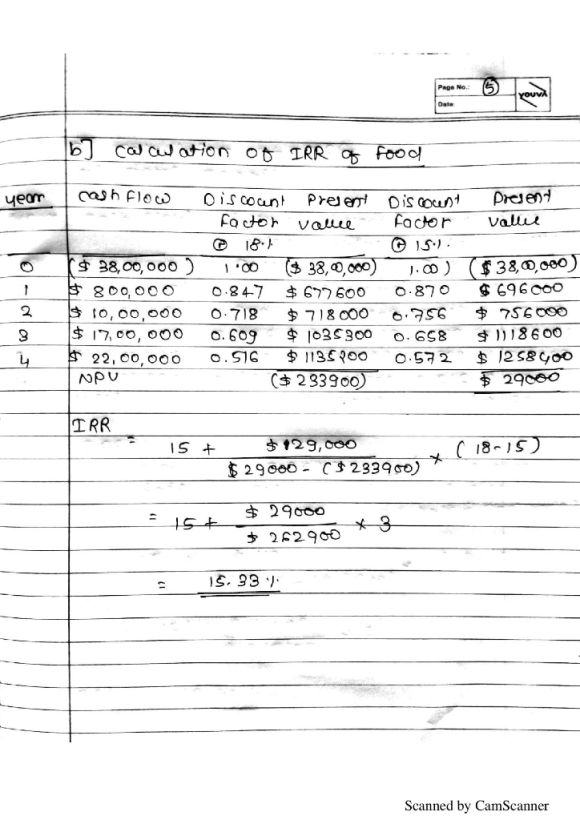 Page No.: 5
Date
YOUVA
b] Calculation of IRR of Food
year cash flow Discount Present Discount Present
factor value factor value
@ 18% @ 15%
0 ($ 38,00,000) 1.00 ($ 38,00,000) 1.00) ($ 38,00,000)
1 $ 800,000 0.847 $ 677600 0.870 $ 696000
2 $ 10,00,000 0.718 $ 718000 0.756 $ 756000
3 $ 17,00,000 0.609 $ 1035300 0.658 $ 1118600
4 $ 22,00,000 0.516 $ 1135200 0.572 $ 1258400
NPV ($ 233900) $ 29000
IRR
= 15 + $ 29,000 × (18-15)
$ 29000 - ($ 233900)
= 15 + $ 29000 × 3
$ 262900
= 15.33 %
Scanned by CamScanner